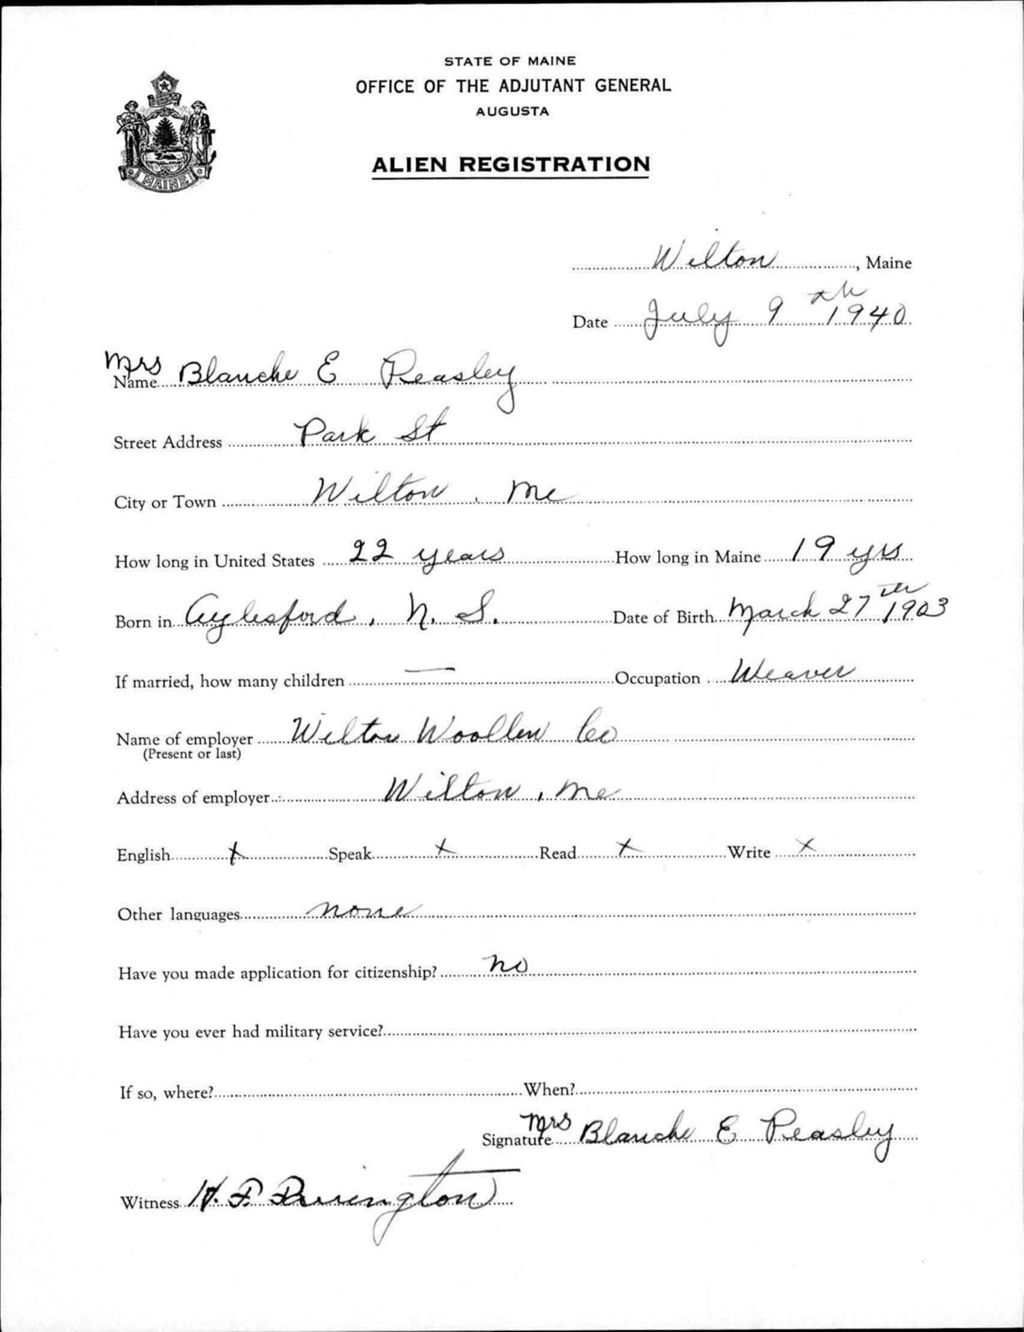 STATE OF MAINE
OFFICE OF THE ADJUTANT GENERAL
AUGUSTA
ALIEN REGISTRATION
MAINE
Wilton, Maine
Date July 9th 1940
Mrs
Name Blanche E Peasley
Street Address Park St
City or Town Wilton, Me
How long in United States 22 years How long in Maine 19 yrs
Born in Aylesford, N. S. Date of Birth March 27th 1903
If married, how many children — Occupation Weaver
Name of employer Wilton Woollen Co
(Present or last)
Address of employer Wilton, Me
English x Speak x Read x Write x
Other languages none
Have you made application for citizenship? no
Have you ever had military service?
If so, where? When?
Mrs
Signature Blanche E Peasley
Witness